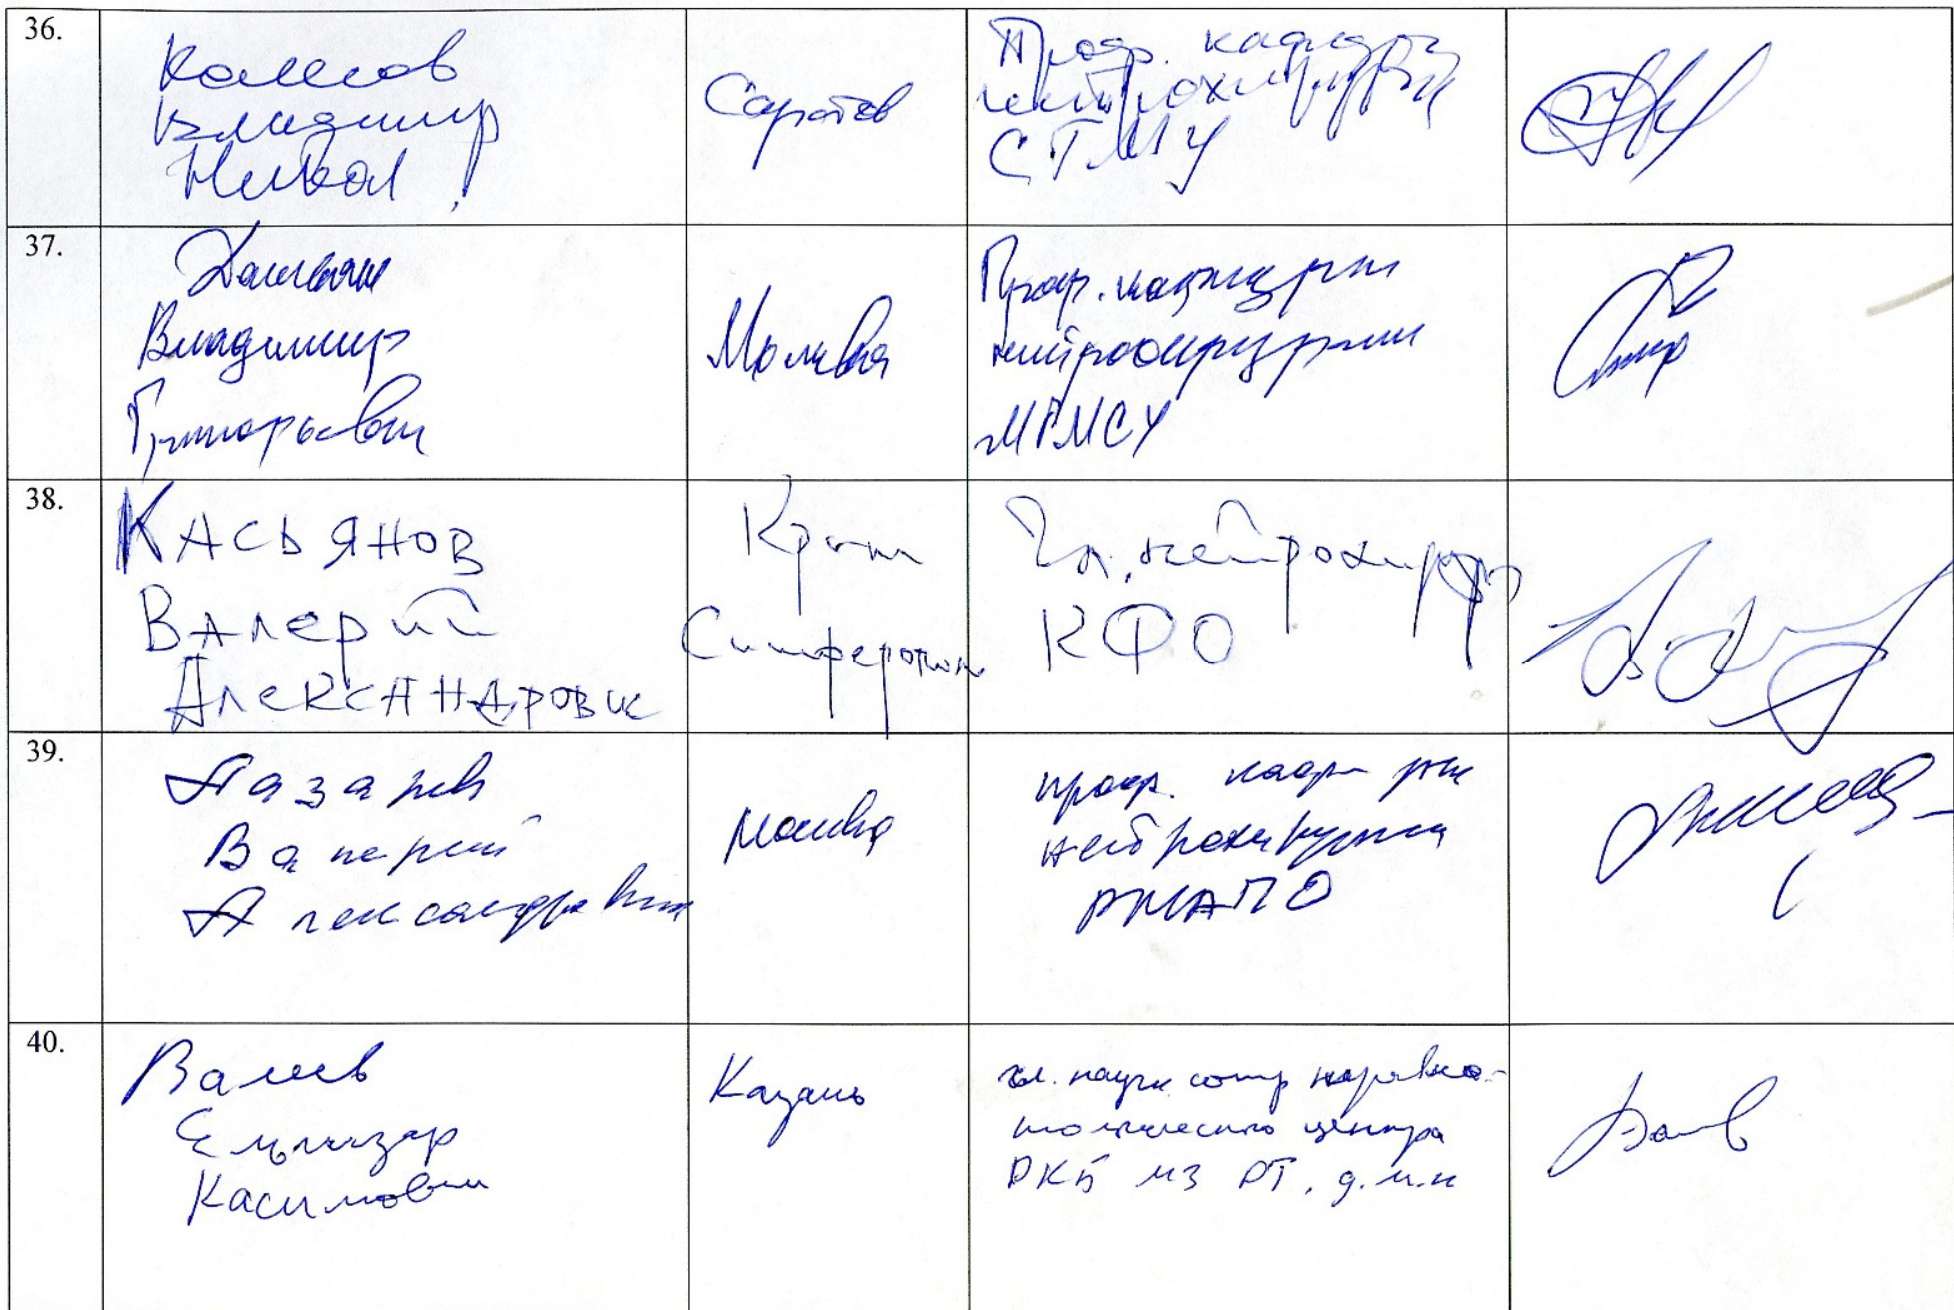 36.
Колесов
Владимир
Никол.
Саратов
Проф. кафедры
нейрохирургии
СГМУ
37.
Дашьян
Владимир
Григорьевич
Москва
Проф. кафедры
нейрохирургии
МГМСУ
38.
Касьянов
Валерий
Александрович
Крым
Симферополь
Гл. нейрохирург
КФО
39.
Лазарев
Валерий
Александрович
Москва
проф. кафедры
нейрохирургии
РМАПО
40.
Валеев
Ельгизар
Касимович
Казань
гл. научн сотр
центра
РКБ МЗ РТ, д.м.н